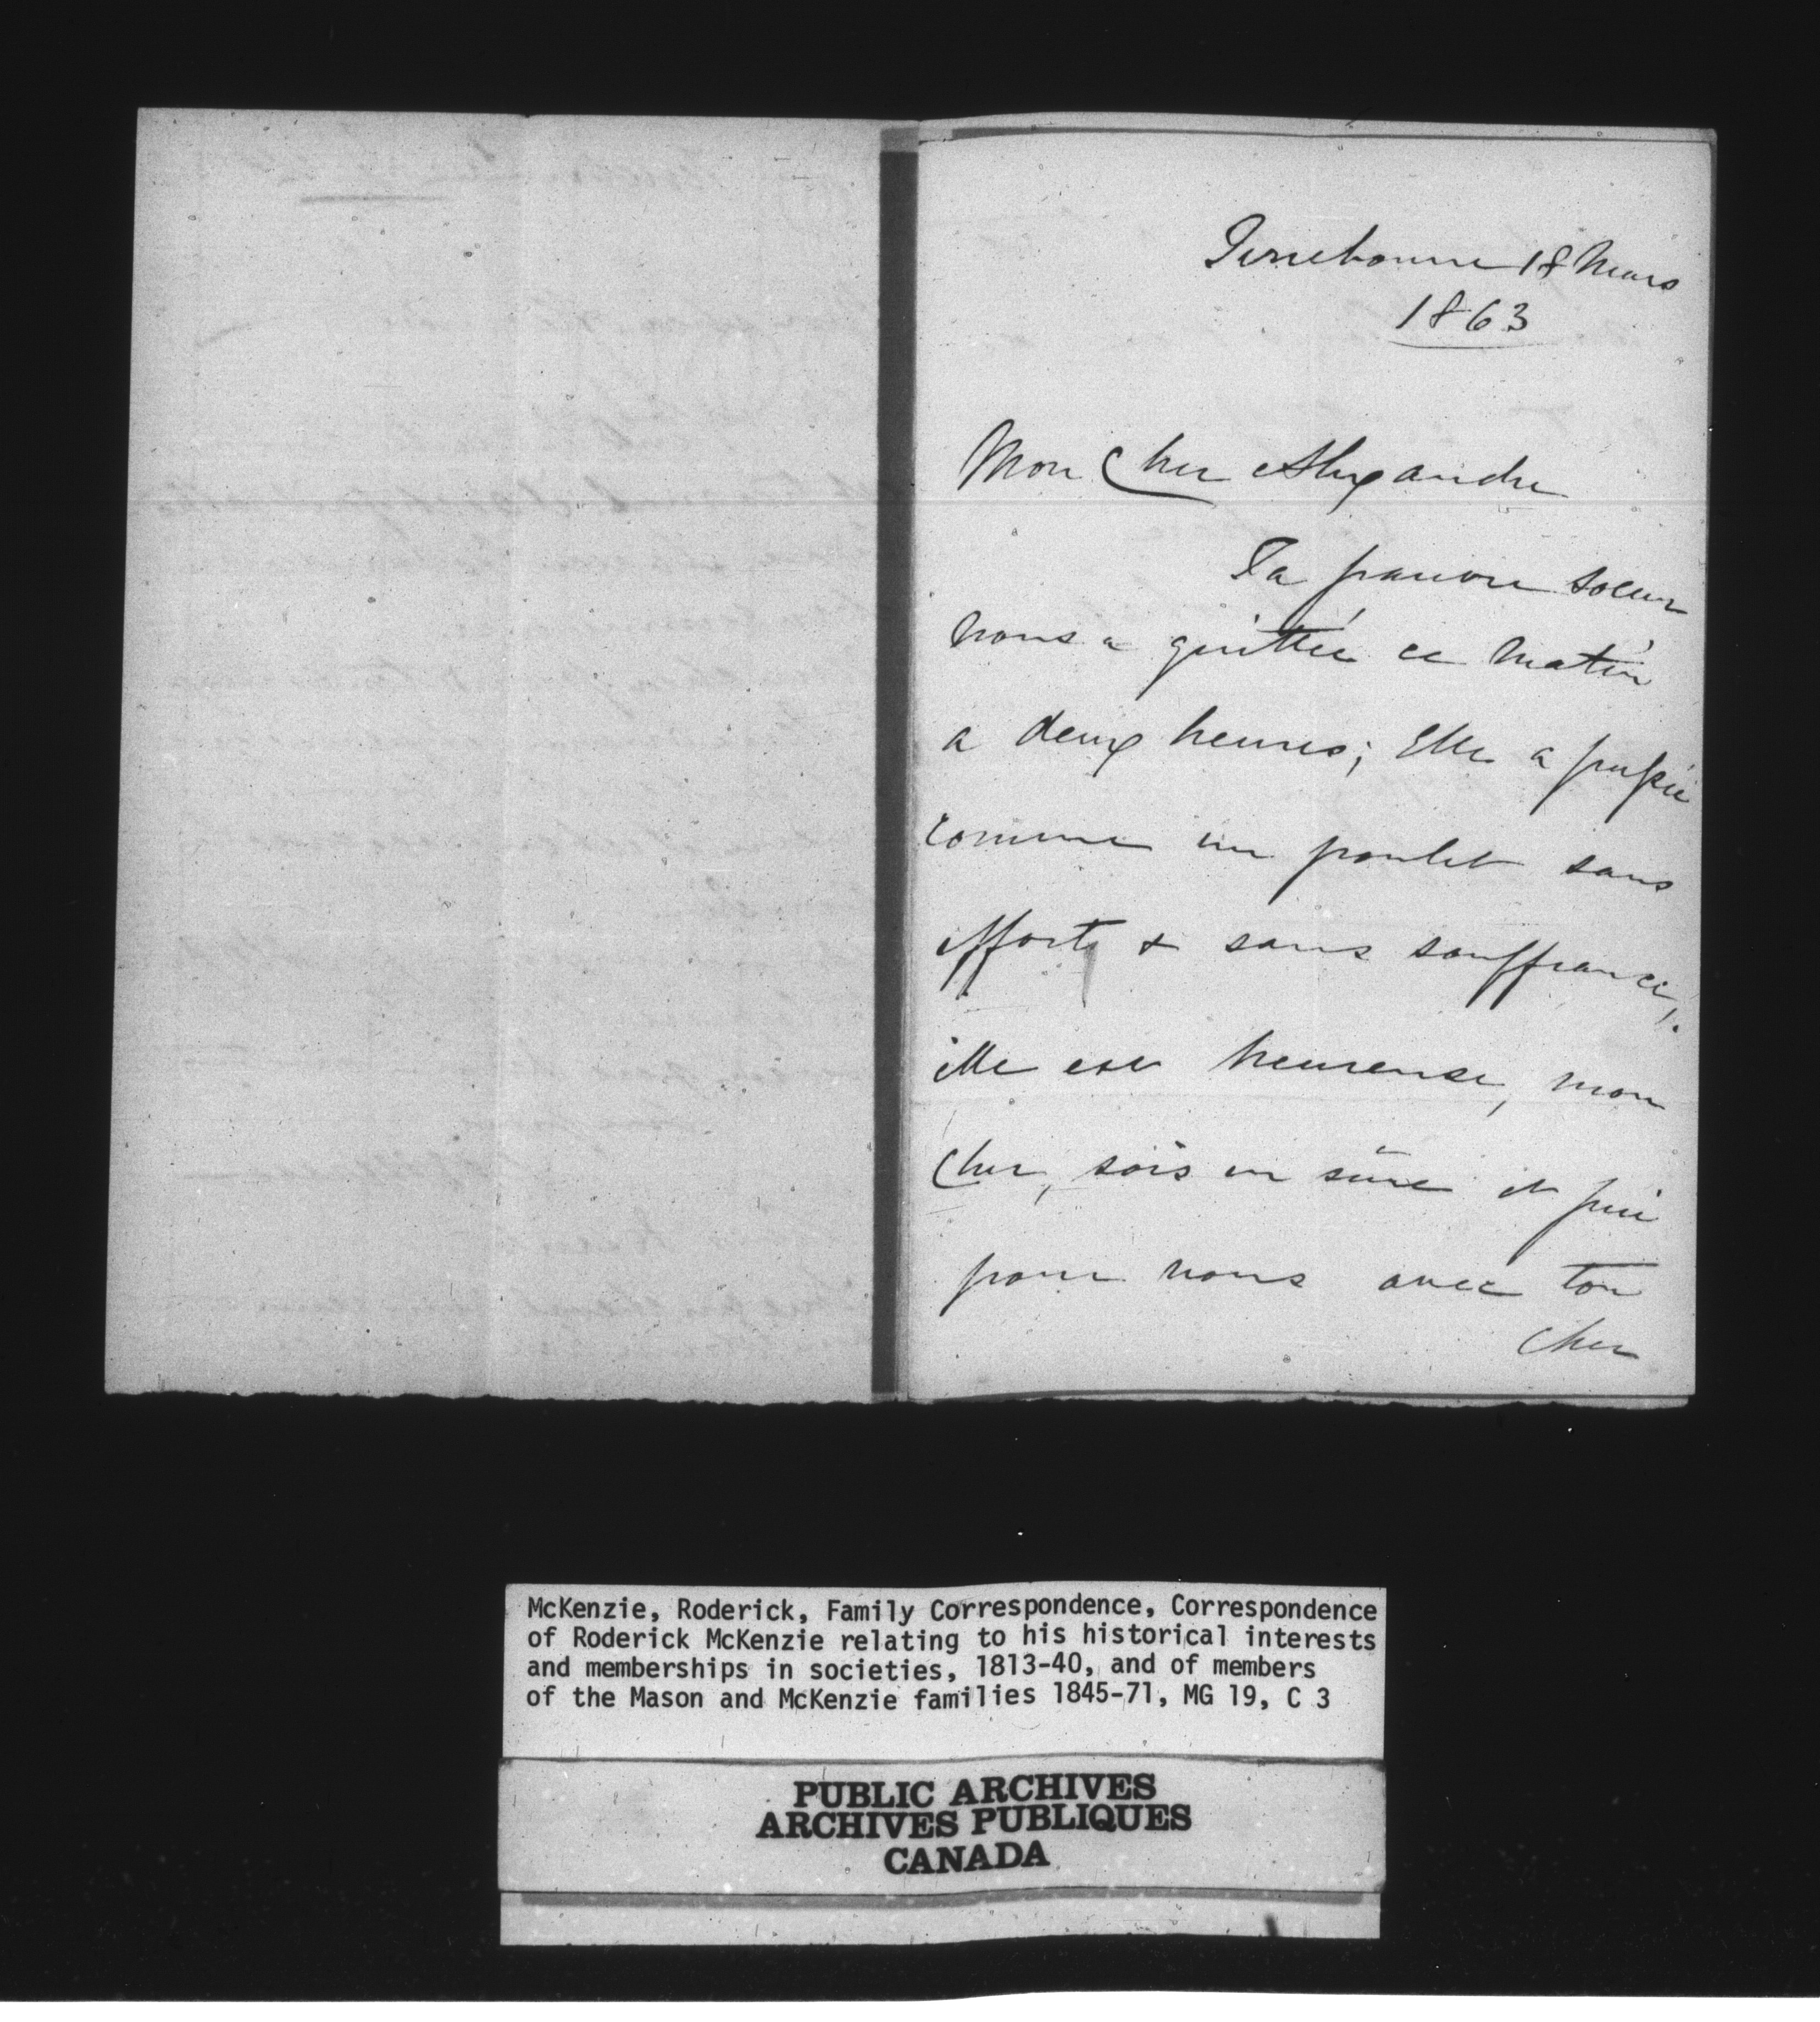 Terrebonne 18 Mars
1863
Mon Cher Alexandre
Ta pauvre soeur
nous a quittée ce matin
a deux heures; Elle a passée
comme un poulet sans
efforts & sans souffrance,
elle est heureuse, mon
Cher, sois en sûre et prie
pour nous avec ton
Cher
McKenzie, Roderick, Family Correspondence, Correspondence
of Roderick McKenzie relating to his historical interests
and memberships in societies, 1813-40, and of members
of the Mason and McKenzie families 1845-71, MG 19, C 3
PUBLIC ARCHIVES
ARCHIVES PUBLIQUES
CANADA